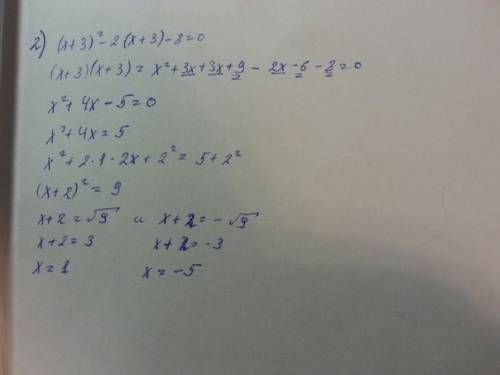 2) (x+3)² - 2(x+3) - 8 = 0
(x+3)(x+3) = x² + 3x + 3x + 9 - 2x - 6 - 8 = 0
x² + 4x - 5 = 0
x² + 4x = 5
x² + 2·1·2x + 2² = 5 + 2²
(x+2)² = 9
x+2 = √9 и x+2 = -√9
x+2 = 3 x+2 = -3
x = 1 x = -5